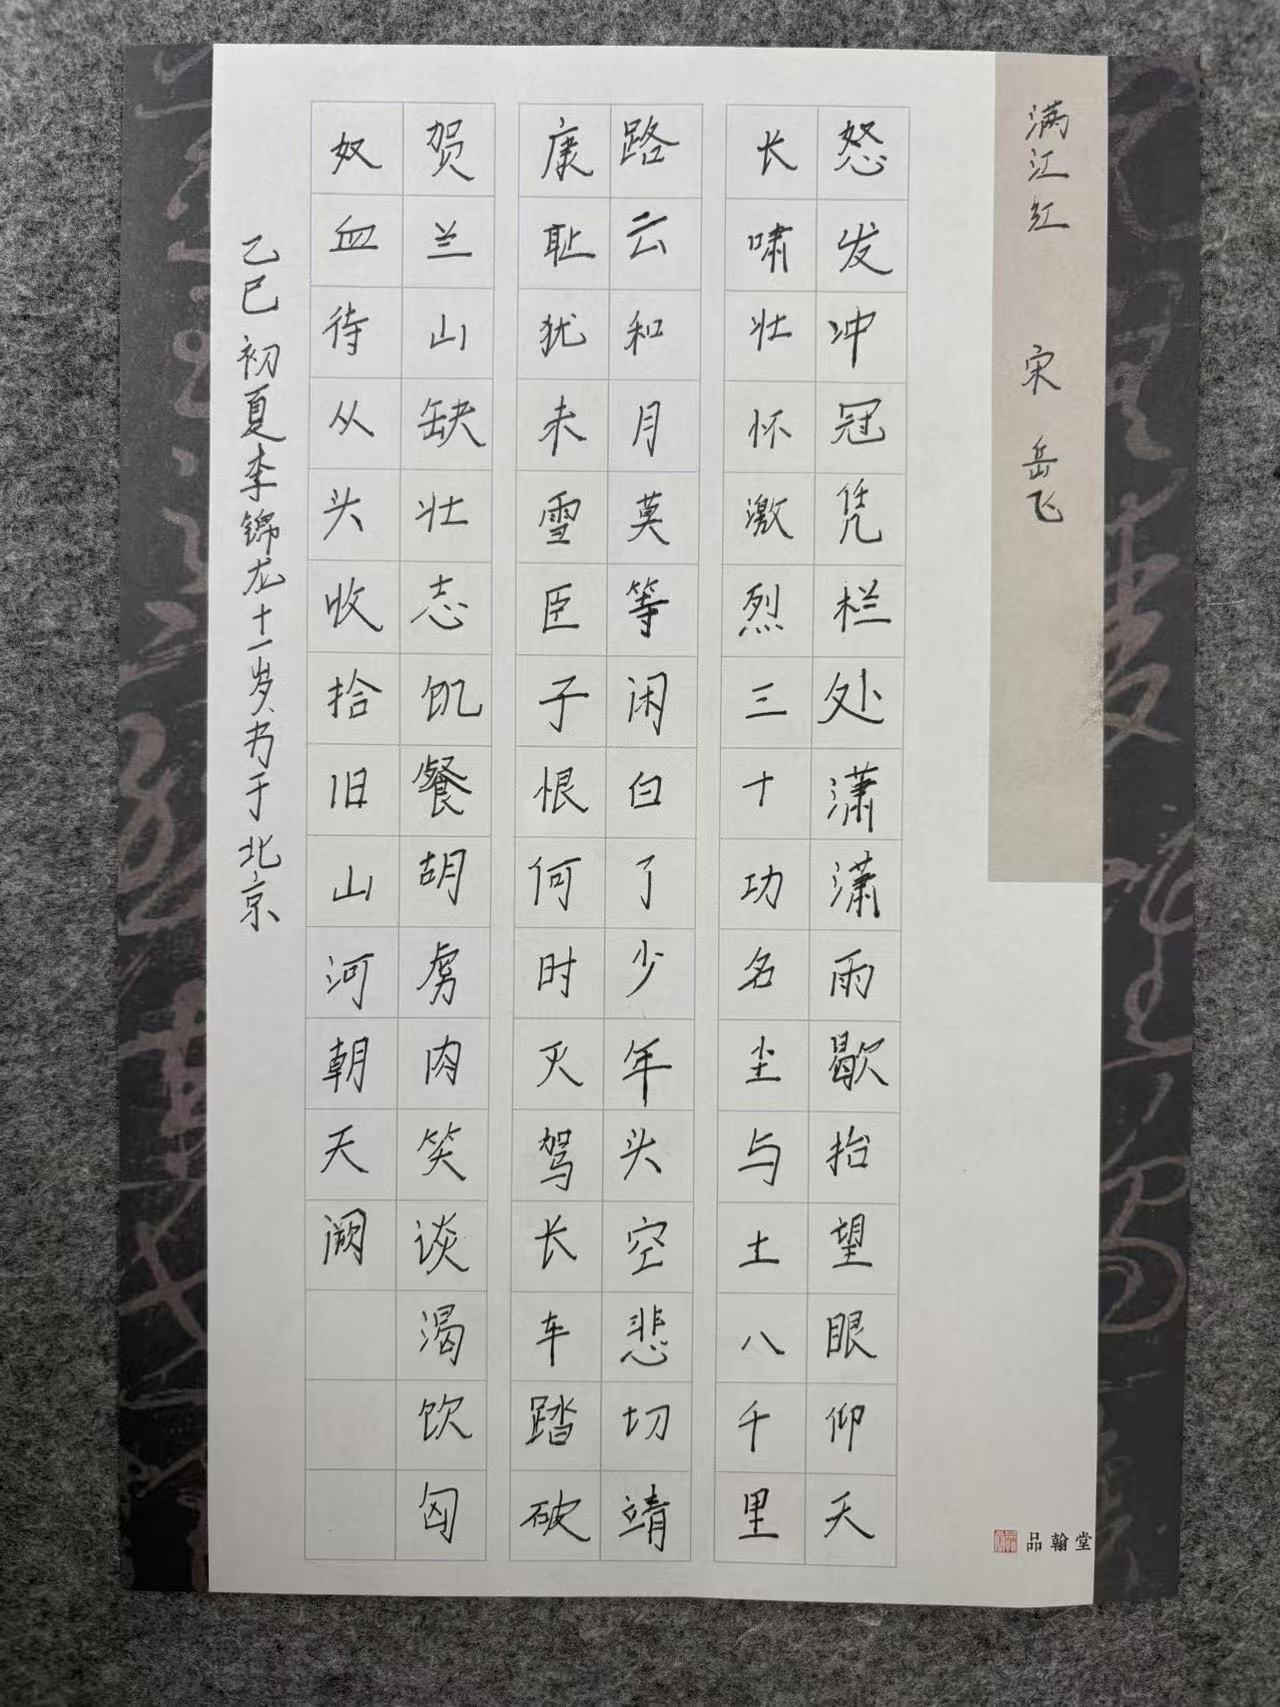 满江红 宋 岳飞
怒发冲冠凭栏处潇潇雨歇抬望眼仰天
长啸壮怀激烈三十功名尘与土八千里
路云和月莫等闲白了少年头空悲切靖
康耻犹未雪臣子恨何时灭驾长车踏破
贺兰山缺壮志饥餐胡虏肉笑谈渴饮匈
奴血待从头收拾旧山河朝天阙
乙巳初夏李锦龙十一岁书于北京
品翰堂